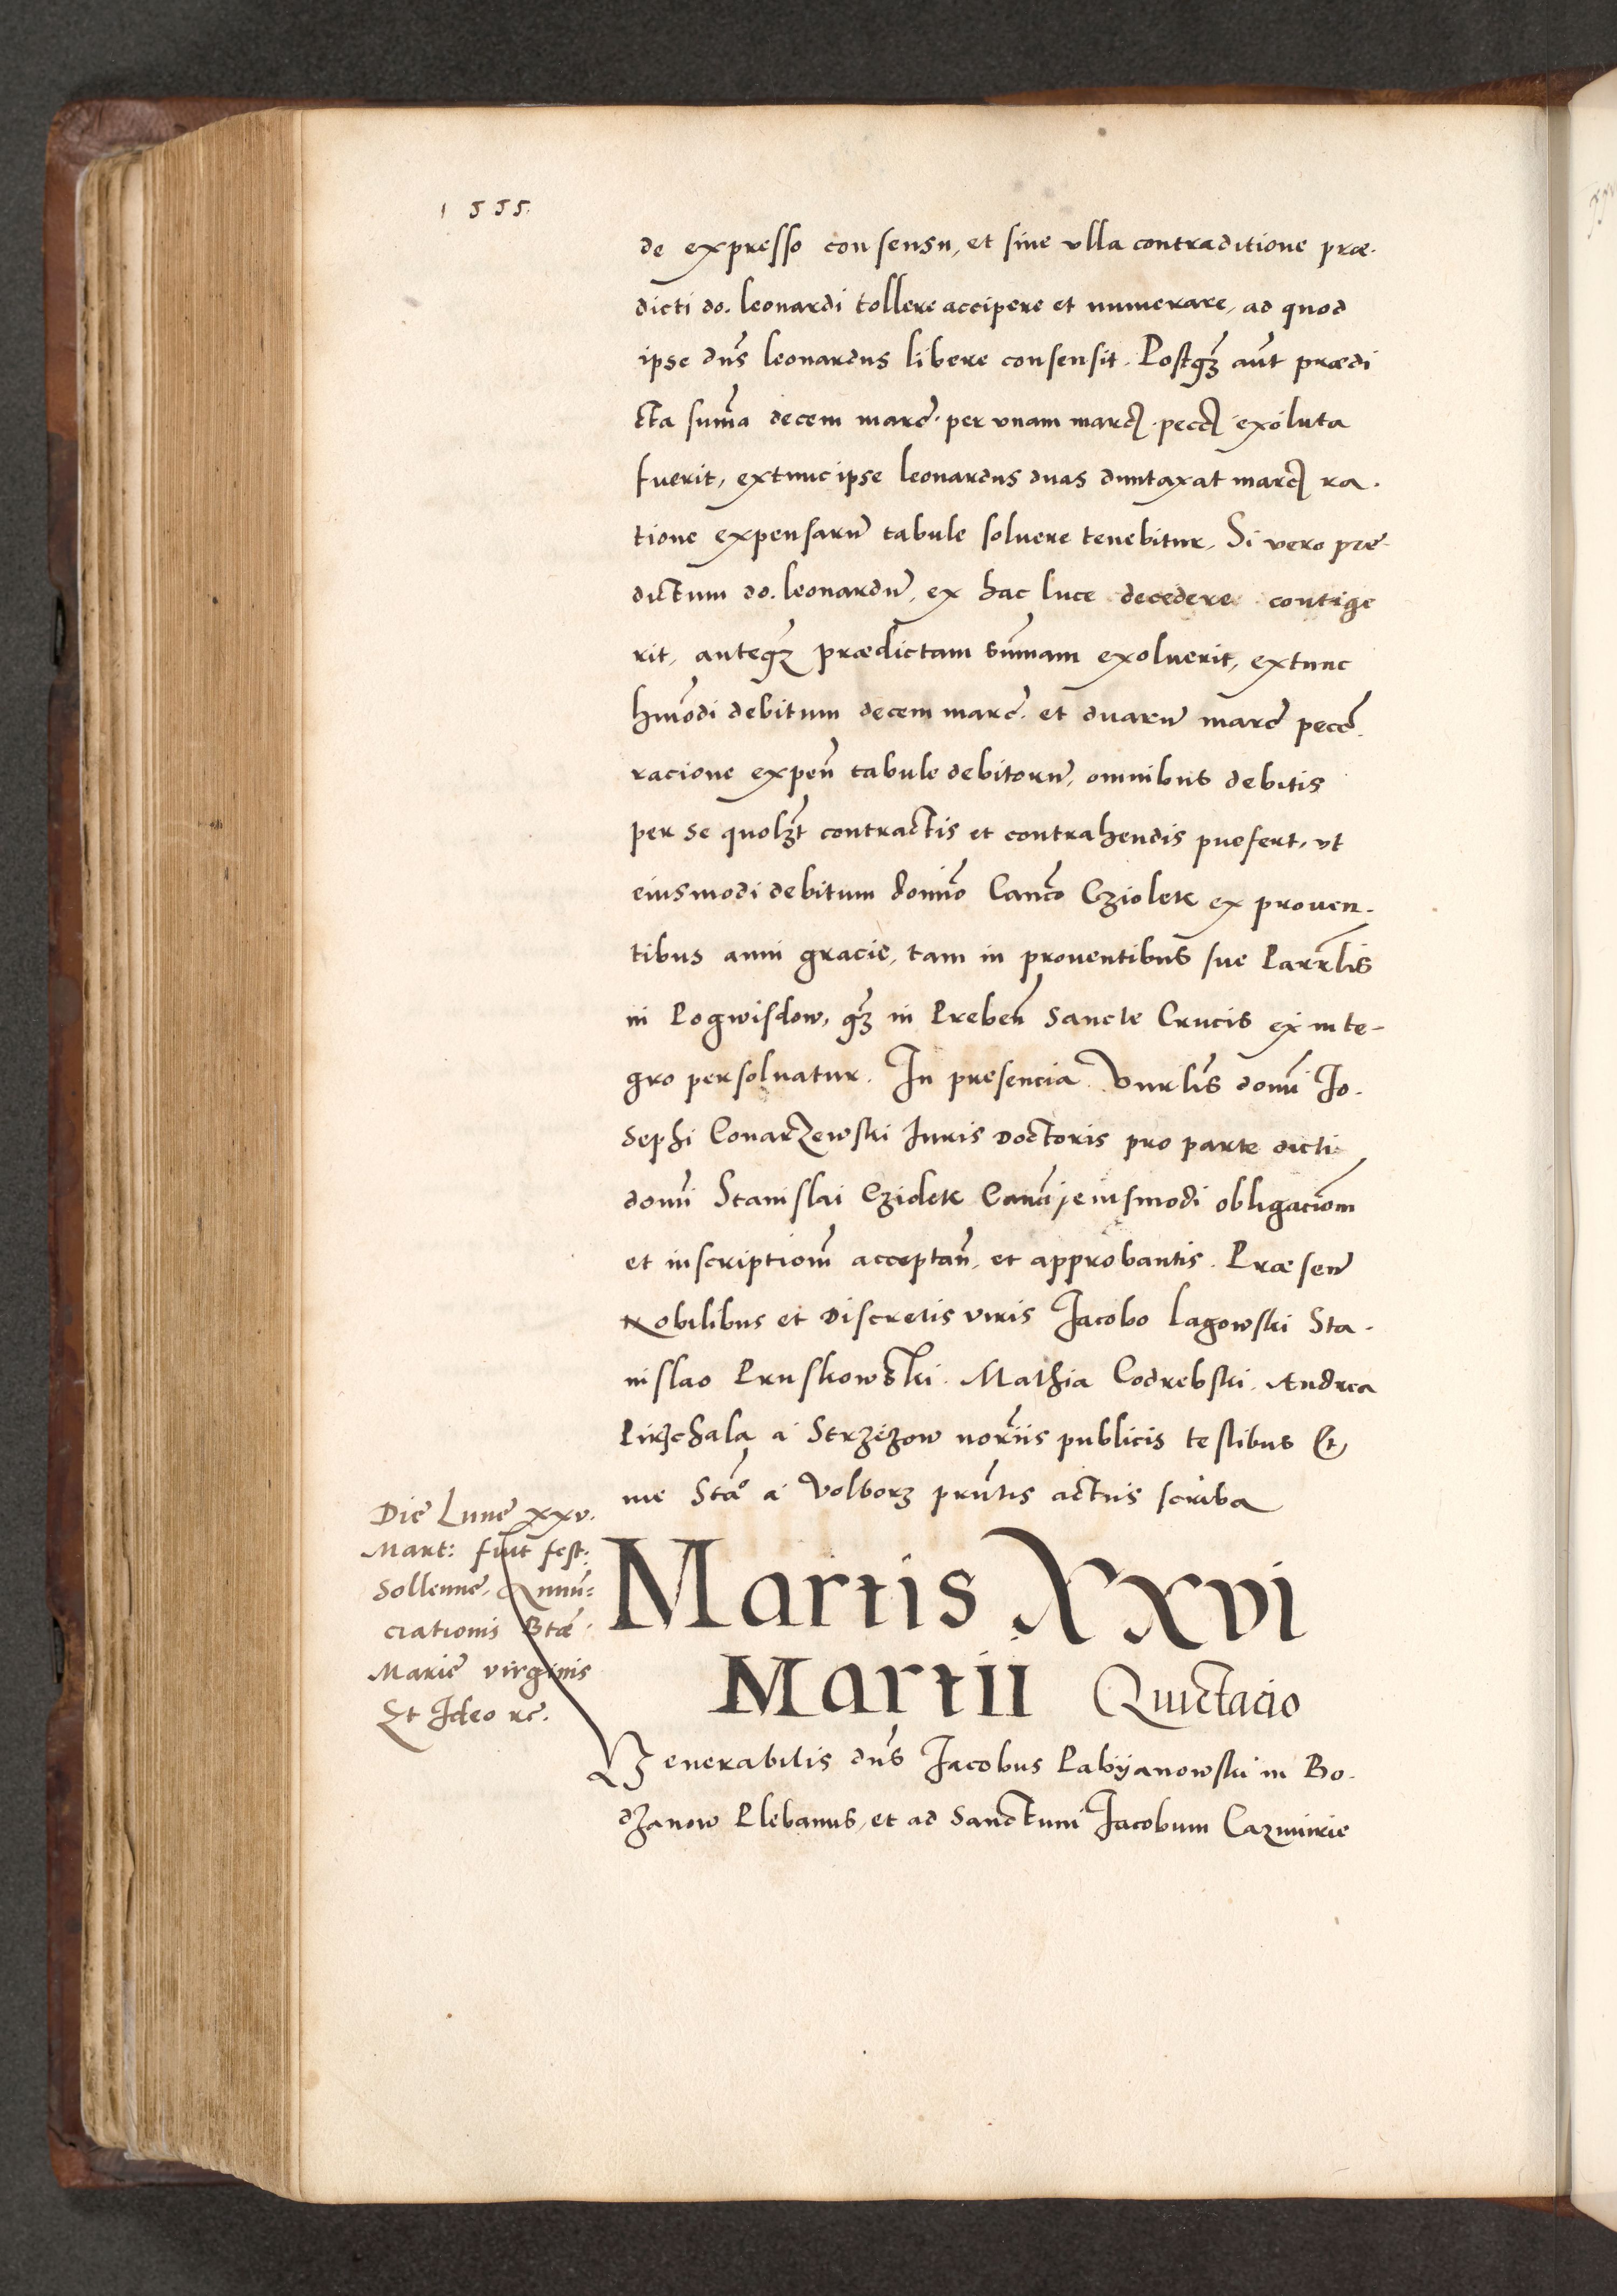 1555.
de expresso consensu, et sine vlla contraditione præ-
dicti do. leonardi tollere accipere et numerare, ad quod
ipse dns leonardus libere consensit. Postqȝ aut prædi
cta suma decem marc. per vnam marc. pecc. exoluta
fuerit, extunc ipse leonardus duas duntaxat marc. ra-
tione expensaru tabule soluere tenebitur. Si vero præ-
dictum do. leonardu, ex hac luce decedere contige
rit, anteqȝ prædictam sumam exoluerit, extunc
hmodi debitum decem marc. et duaru marc pecc.
racione expen tabule debitoru, omnibus debitis
per se quolȝt contractis et contrahendis prefert, vt
eiusmodi debitum domino Canco Cziolek ex prouen-
tibus anni gracie, tam in prouentibus sue Parrlis
in Pogwisdow, qȝ in Preben Sancte Crucis ex inte-
gro persoluatur. In presencia Vnrlis domi Jo-
sephi Conarzewski Juris doctoris pro parte dicti
domi Stanislai Cziolek Canci eiusmodi obligaciom
et inscriptiom acceptan, et approbantis. Præsen
Nobilibus et discretis viris Jacobo Lagowski Sta-
nislao Pruskowski. Mathia Codrebski. Andrea
Pirzchala a Strzezow noriis publicis testibus Et
me Sta a Volborz prntis actus scriba
Die Lune xxv.
Mart: fuit fest:
Sollenne. Annu=
ciationis Btæ
Marie virginis
Et Ideo rc.
Martis XXvi
Martii Quictacio
Venerabilis dns Jacobus Pabyanowski in Bo-
dzanow Plebanus, et ad Sanctum Jacobum Cazmirie